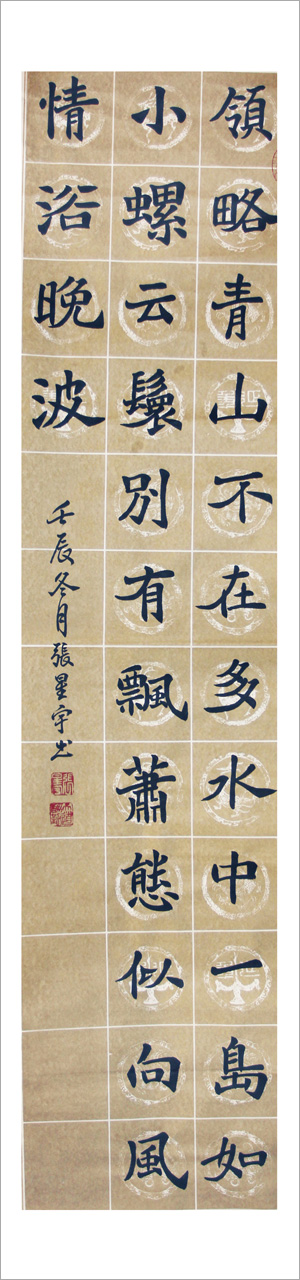 領略青山不在多水中一島如
小螺云鬟別有飄蕭態似向風
情浴晚波
壬辰冬月張星宇書